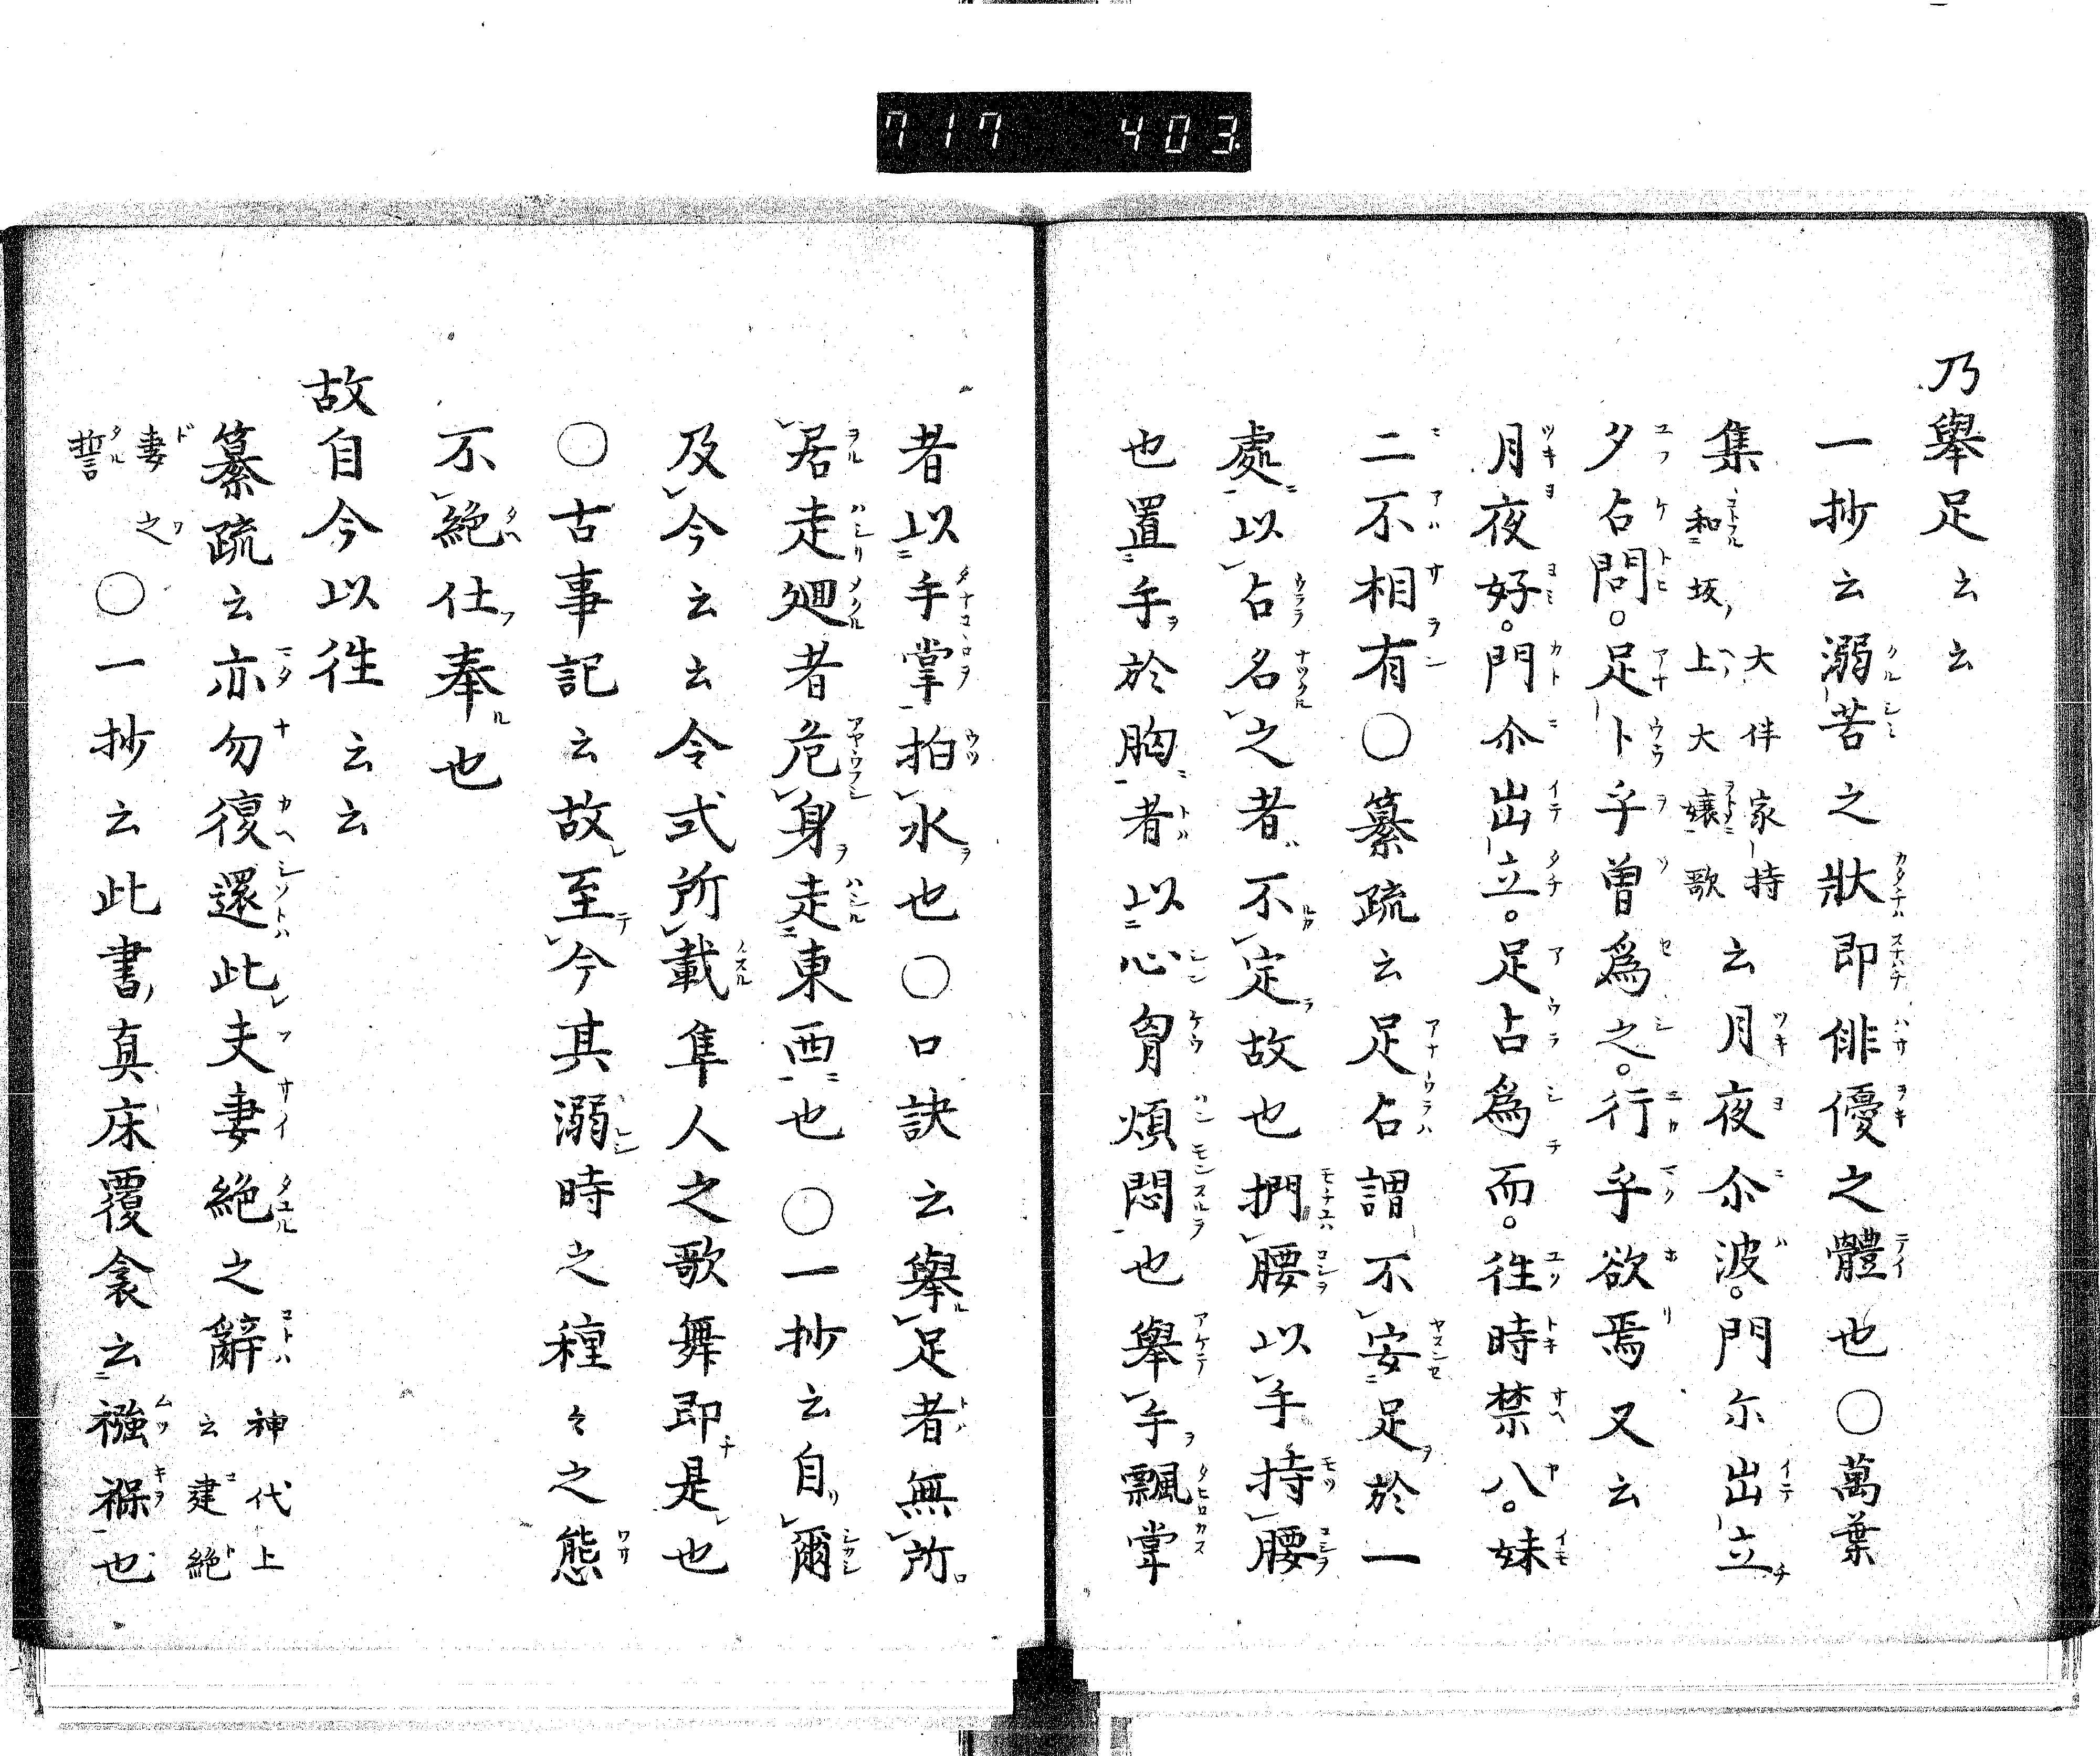 717 403.
乃舉足云云
一抄云溺苦之狀即俳優之體也○萬葉
集和坂上大孃歌大伴家持云月夜尒波。門尓出立
夕占問。足卜乎曽爲之。行乎欲焉又云
月夜好。門尒出立。足占爲而。往時禁八。妹
二不相有○纂疏云足占謂不安足於一
處以占名之者不定故也捫腰以手持腰
也置手於胸者以心胷煩悶也舉手飄掌
者以手掌拍水也○口訣云舉足者無所
居走廻者危身走東西也○一抄云自爾
及今云云令式所載隼人之歌舞即是也
○古事記云故至今其溺時之種々之態
不絶仕奉也
故自今以往云云
纂疏云亦勿復還此夫妻絶之辭神代上云建絶
妻之誓○一抄云此書真床覆衾云襁褓也